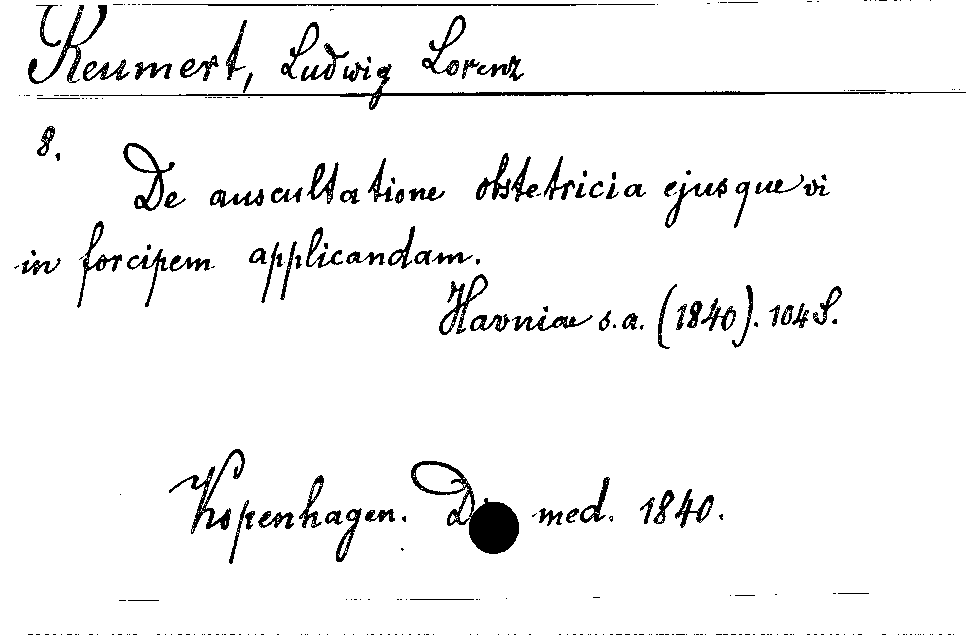 Reumert, Ludwig Lorenz
8.
De auscultatione obstetricia ejusque vi
in forcipem applicandam.
Havniae s.a. (1840). 104 S.
Kopenhagen. med. 1840.